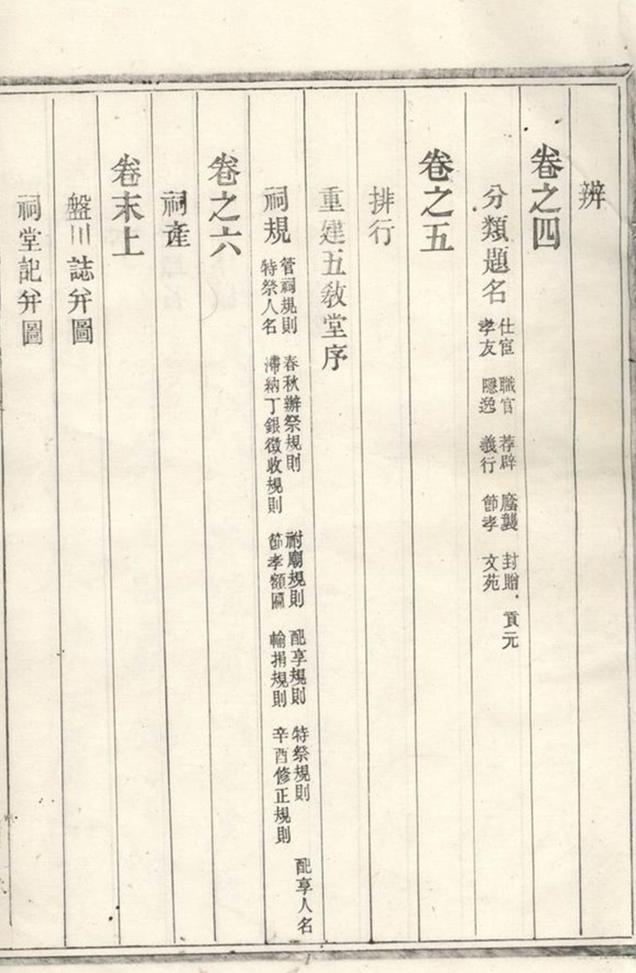 辨
卷之四
分類題名
仕宦 職官 荐辟 廕襲 封贈 貢元
孝友 隱逸 義行 節孝 文苑
卷之五
排行
重建五教堂序
祠規
管祠規則 春秋辦祭規則 祔廟規則 配享規則 特祭規則 配享人名
特祭人名 滯納丁銀徵收規則 節孝額匾 輸捐規則 辛酉修正規則
卷之六
祠產
卷末上
盤川誌弁圖
祠堂記弁圖